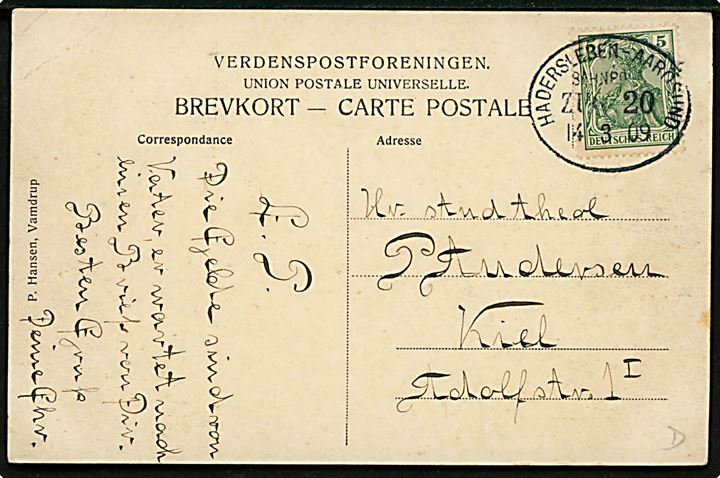 VERDENSPOSTFORENINGEN.
UNION POSTALE UNIVERSELLE.
BREVKORT — CARTE POSTALE
Correspondance
Adresse
5
DEUTSCHES REICH
HADERSLEBEN-AARÖSUND
BAHNPOST
ZUG 20
14 3 09
L. P.
Die sind von
Vater, er wartet nach
einen Brief von Dir.
Besten Gruß
Deine Chr.
Hr. stud theol
P Andersen
Kiel
Adolfstr. 1 I
P. Hansen, Vamdrup
D